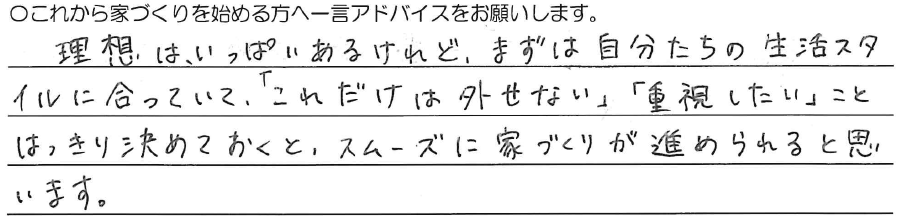 ○これから家づくりを始める方へ一言アドバイスをお願いします。
理想は、いっぱいあるけれど、まずは自分たちの生活スタ
イルに合っていて、「これだけは外せない」「重視したい」こと
はっきり決めておくと、スムーズに家づくりが進められると思
います。